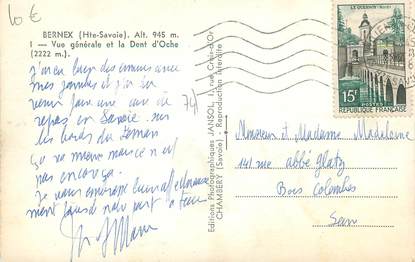 10 €
BERNEX (Hte-Savoie). Alt. 945 m.
1 — Vue générale et la Dent d'Oche
(2222 m.).
J'ai eu bien des ennuis avec
mes jambes et j'ai dû
venir faire une cure de
repos en Savoie sur
les bords du Léman
Ça va mieux mais ce n'est
pas encore ça.
Je vous embrasse bien affectueuse
ment
74
Editions Photographiques JANSOL, 11, rue Croix-d'Or
CHAMBERY (Savoie) - Reproduction interdite
LE QUESNOY (NORD)
15F
POSTES
REPUBLIQUE FRANÇAISE
Monsieur et Madame Madelaine
141 rue abbé Glatz
Bois Colombes
Seine